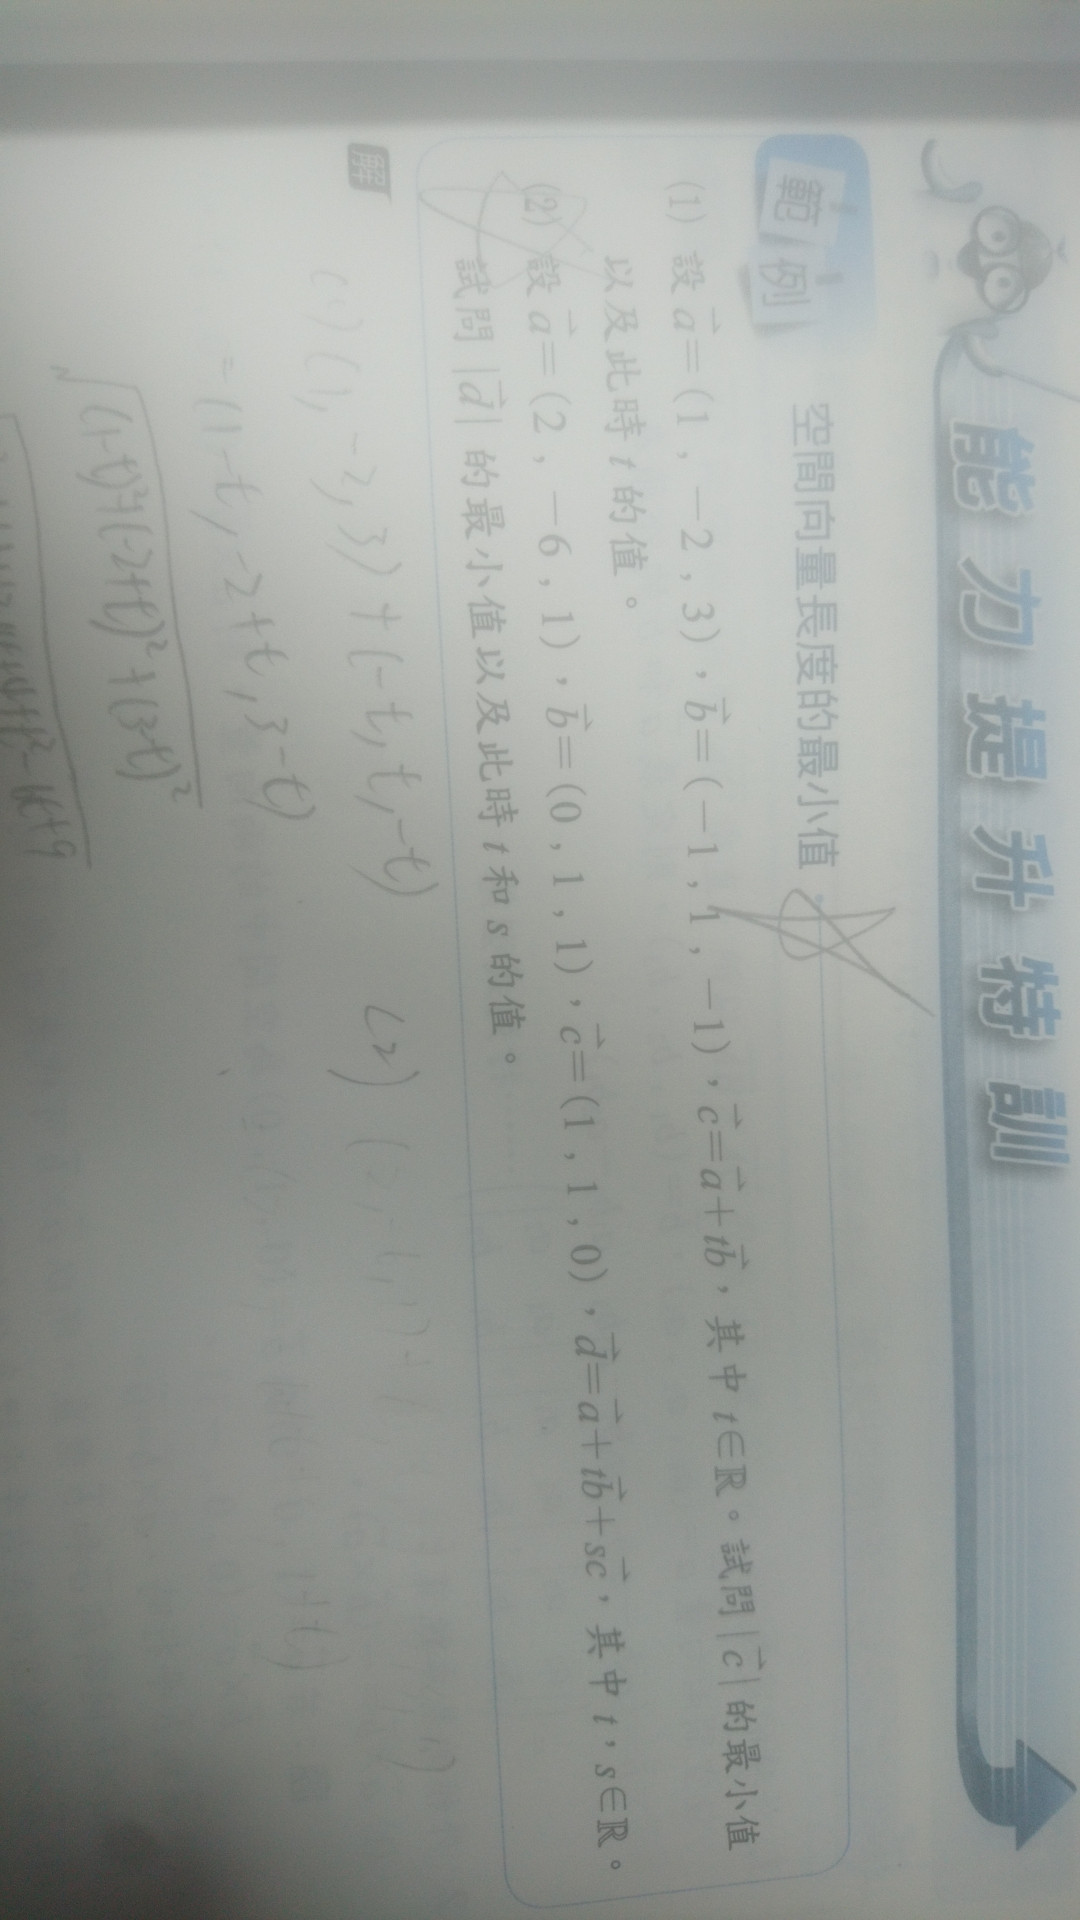 能力提升特訓
範例 空間向量長度的最小值
(1) 設 a⃗=(1,-2,3),b⃗=(-1,1,-1),c⃗=a⃗+tb⃗,其中 t∈ℝ。試問|c⃗|的最小值
以及此時 t 的值。
(2) 設 a⃗=(2,-6,1),b⃗=(0,1,1),c⃗=(1,1,0),d⃗=a⃗+tb⃗+sc⃗,其中 t,s∈ℝ。
試問 |d⃗| 的最小值以及此時 t 和 s 的值。
解
(1) (1,-2,3)+(-t,t,-t)
=(1-t,-2+t,3-t)
√(1-t)²+(-2+t)²+(3-t)²
(2)